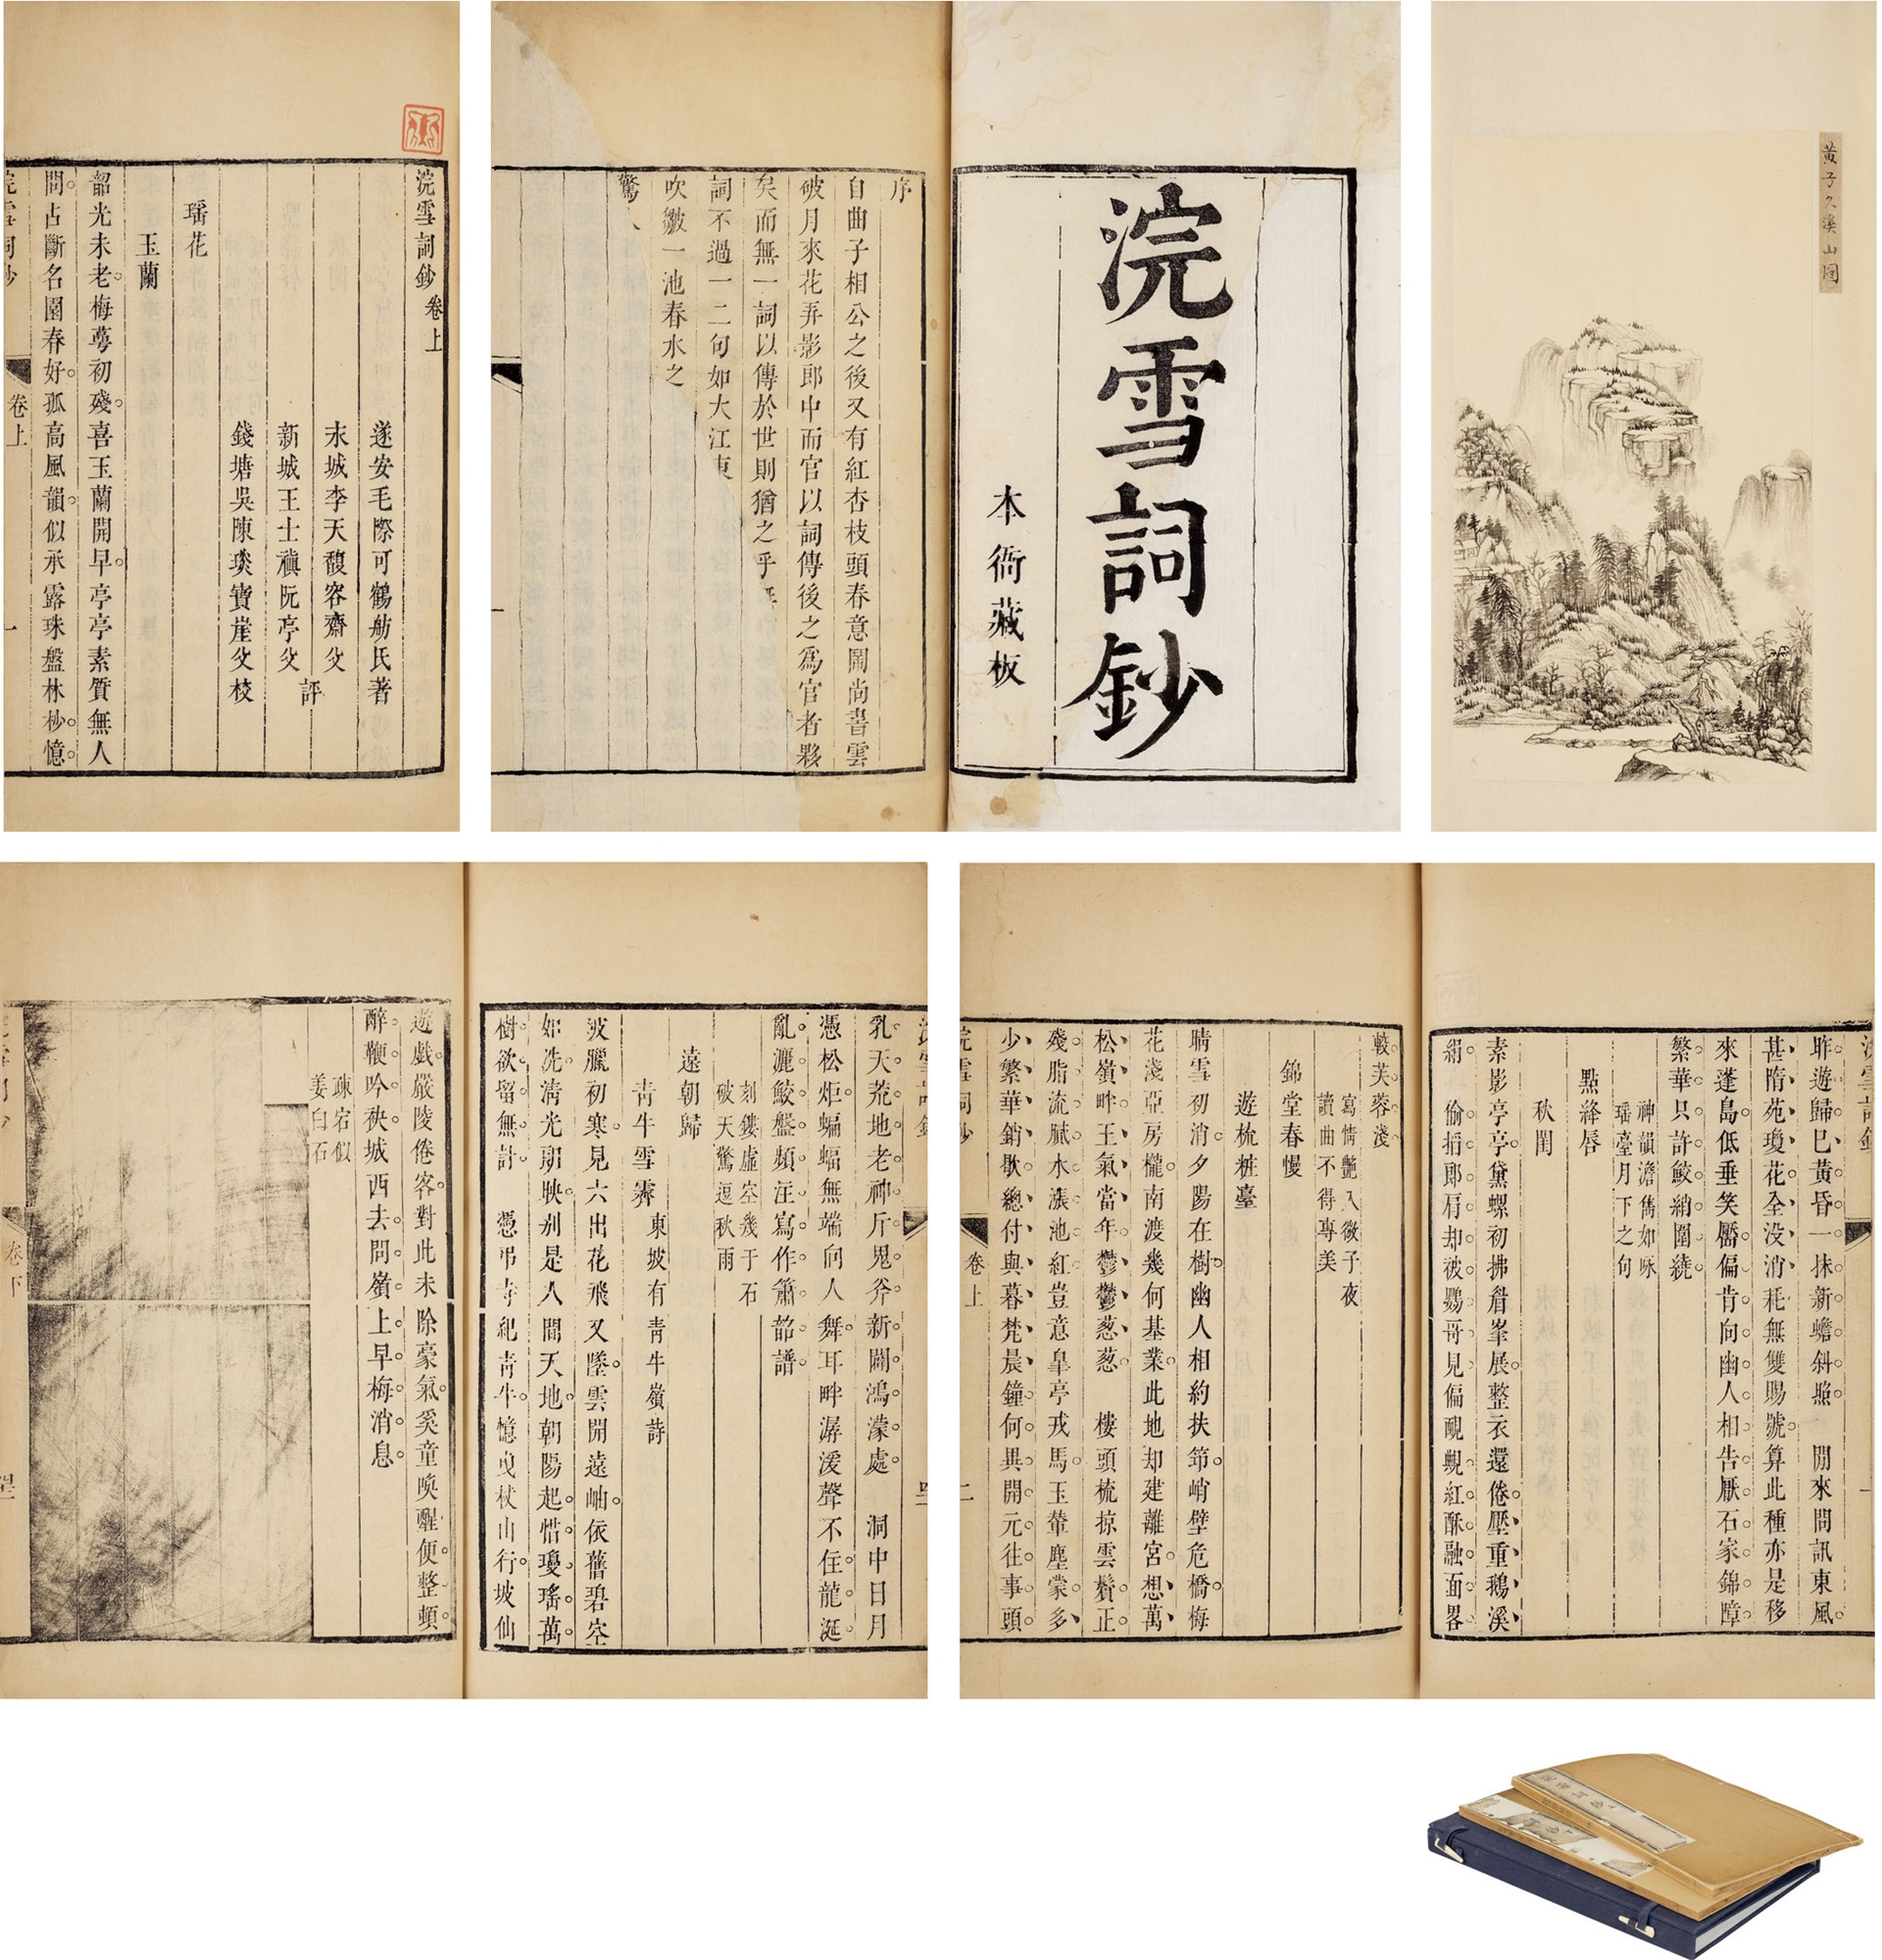 黃子久溪山圖
浣雪詞鈔
本衙藏板
序
自曲子相公之後又有紅杏枝頭春意鬧尚書雲
破月來花弄影郎中而官以詞傳後之為官者夥
矣而無一詞以傳於世則猶之乎
詞不過一二句如大江東
吹皺一池春水之
驚人
浣雪詞鈔卷上
遂安毛際可鶴舫氏著
永城李天馥容齋父
新城王士禛阮亭父
評
錢塘吳陳琰寶崖父校
瑤花
玉蘭
韶光未老梅萼初殘喜玉蘭開早亭亭素質無人
問占斷名園春好孤高風韻似承露珠盤林杪憶
浣雪詞鈔
卷上
一
昨遊歸巳黃昏一抹新蟾斜照 閒來問訊東風
甚隋苑瓊花全没消耗無雙賜號算此種亦是移
來蓬島低垂笑靨偏肯向幽人相告厭石家錦障
繁華只許鮫綃圍繞
神韻澹雋如咏
瑤臺月下之句
點絳唇
秋閨
素影亭亭黛螺初拂眉峯展整衣還倦壓重鵝溪
絹 偷掐郎肩却被鸚哥見偏靦覥紅酥融面畧
較芙蓉淺
寫情艷入微子夜
讀曲不得專美
錦堂春慢
遊梳粧臺
晴雪初消夕陽在樹幽人相約扶笻峭壁危橋梅
花淺亞房櫳南渡幾何基業此地却建離宮想萬
松嶺畔王氣當年鬱鬱葱葱 樓頭梳掠雲鬟正
殘脂流膩水漲池紅豈意臯亭戎馬玉輦塵蒙多
少繁華銷歇總付與暮梵晨鐘何異開元往事頭
浣雪詞鈔
卷上
二
乳天荒地老神斤鬼斧新闢鴻濛處 洞中日月
憑松炬蝙蝠無端向人舞耳畔潺湲聲不住龍涎
亂灑鮫盤頻注寫作簫韶譜
刻鏤虛空幾于石
破天驚逗秋雨
遠朝歸
青牛雪霽
東坡有青牛嶺詩
波臘初寒見六出花飛又墜雲開遠岫依舊碧空
如洗清光朝映别是人間天地朝陽起惜瓊瑤萬
樹欲留無計 憑弔寺紀青牛憶曳杖山行坡仙
遊戲嚴陵倦客對此未除豪氣奚童喚醒便整頓
醉鞭吟袂城西去問嶺上早梅消息
疎宕似
姜白石
卷下